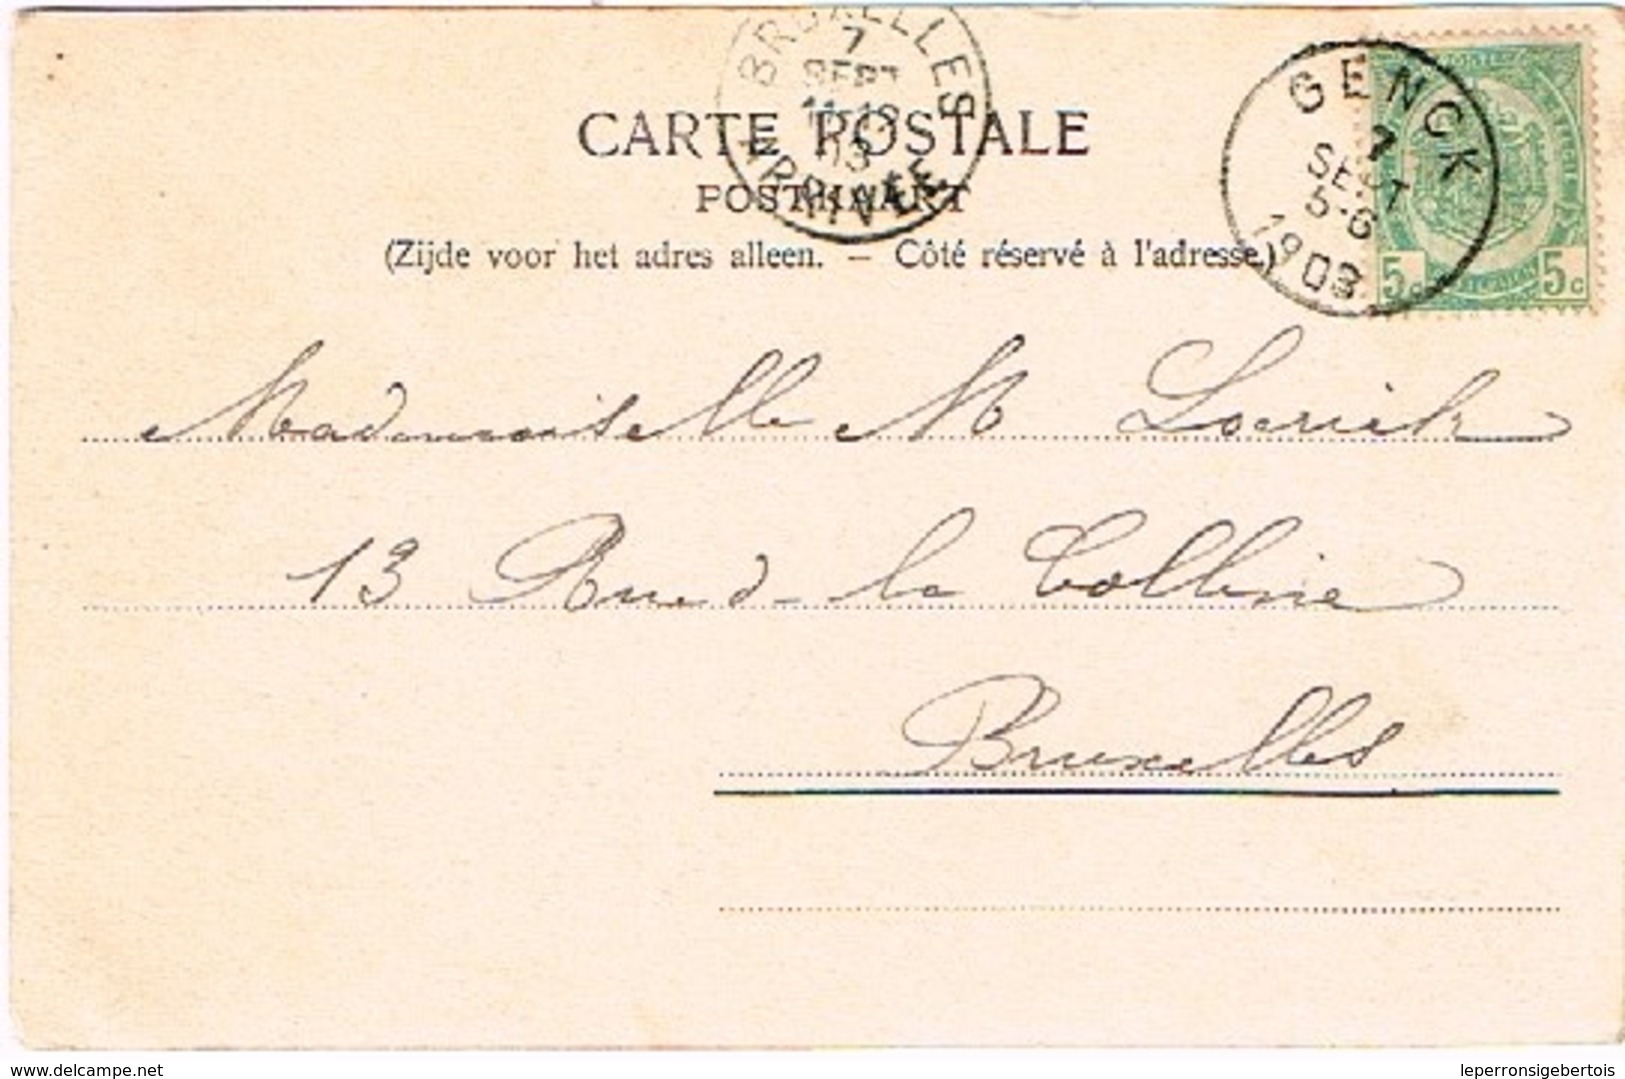 BRUXELLES
7
SEPT
11-12
03
ARRIVÉE
GENCK
7
SEPT
5-6
1903
5c 5c
CARTE POSTALE
POSTKAART
(Zijde voor het adres alleen. — Côté réservé à l'adresse.)
Mademoiselle M
13 Rue d la Colline
Bruxelles
delcampe.net
leperronsigebertois